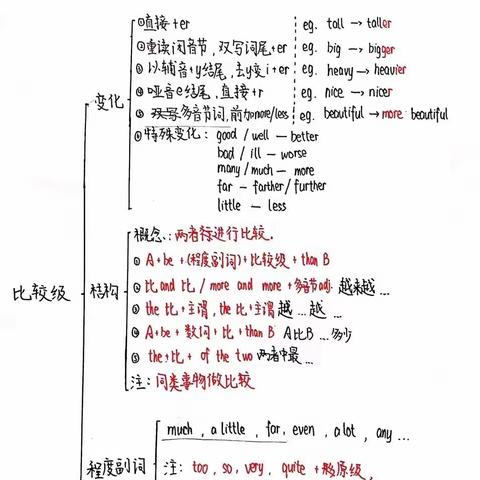 ①直接+er eg. tall → taller
②重读闭音节,双写词尾+er eg. big → bigger
③以辅音+y结尾,去y变i+er eg. heavy → heavier
④哑音e结尾,直接+r eg. nice → nicer
变化
多音节词,前加more/less eg. beautiful → more beautiful
⑥特殊变化: good / well — better
bad / ill — worse
many / much — more
far — farther / further
little — less
比较级
结构
概念:两者进行比较.
① A + be + (程度副词) + 比较级 + than B
② 比 and 比 / more and more + 多音节adj. 越来越 ...
③ the 比 + 主谓, the 比 + 主谓 越 ... 越 ...
④ A + be + 数词 + 比 + than B A比B ... 多少
⑤ the + 比 + of the two 两者中最 ...
注:同类事物做比较
程度副词
much , a little , far, even , a lot , any ...
注: too, so, very, quite + 原级,